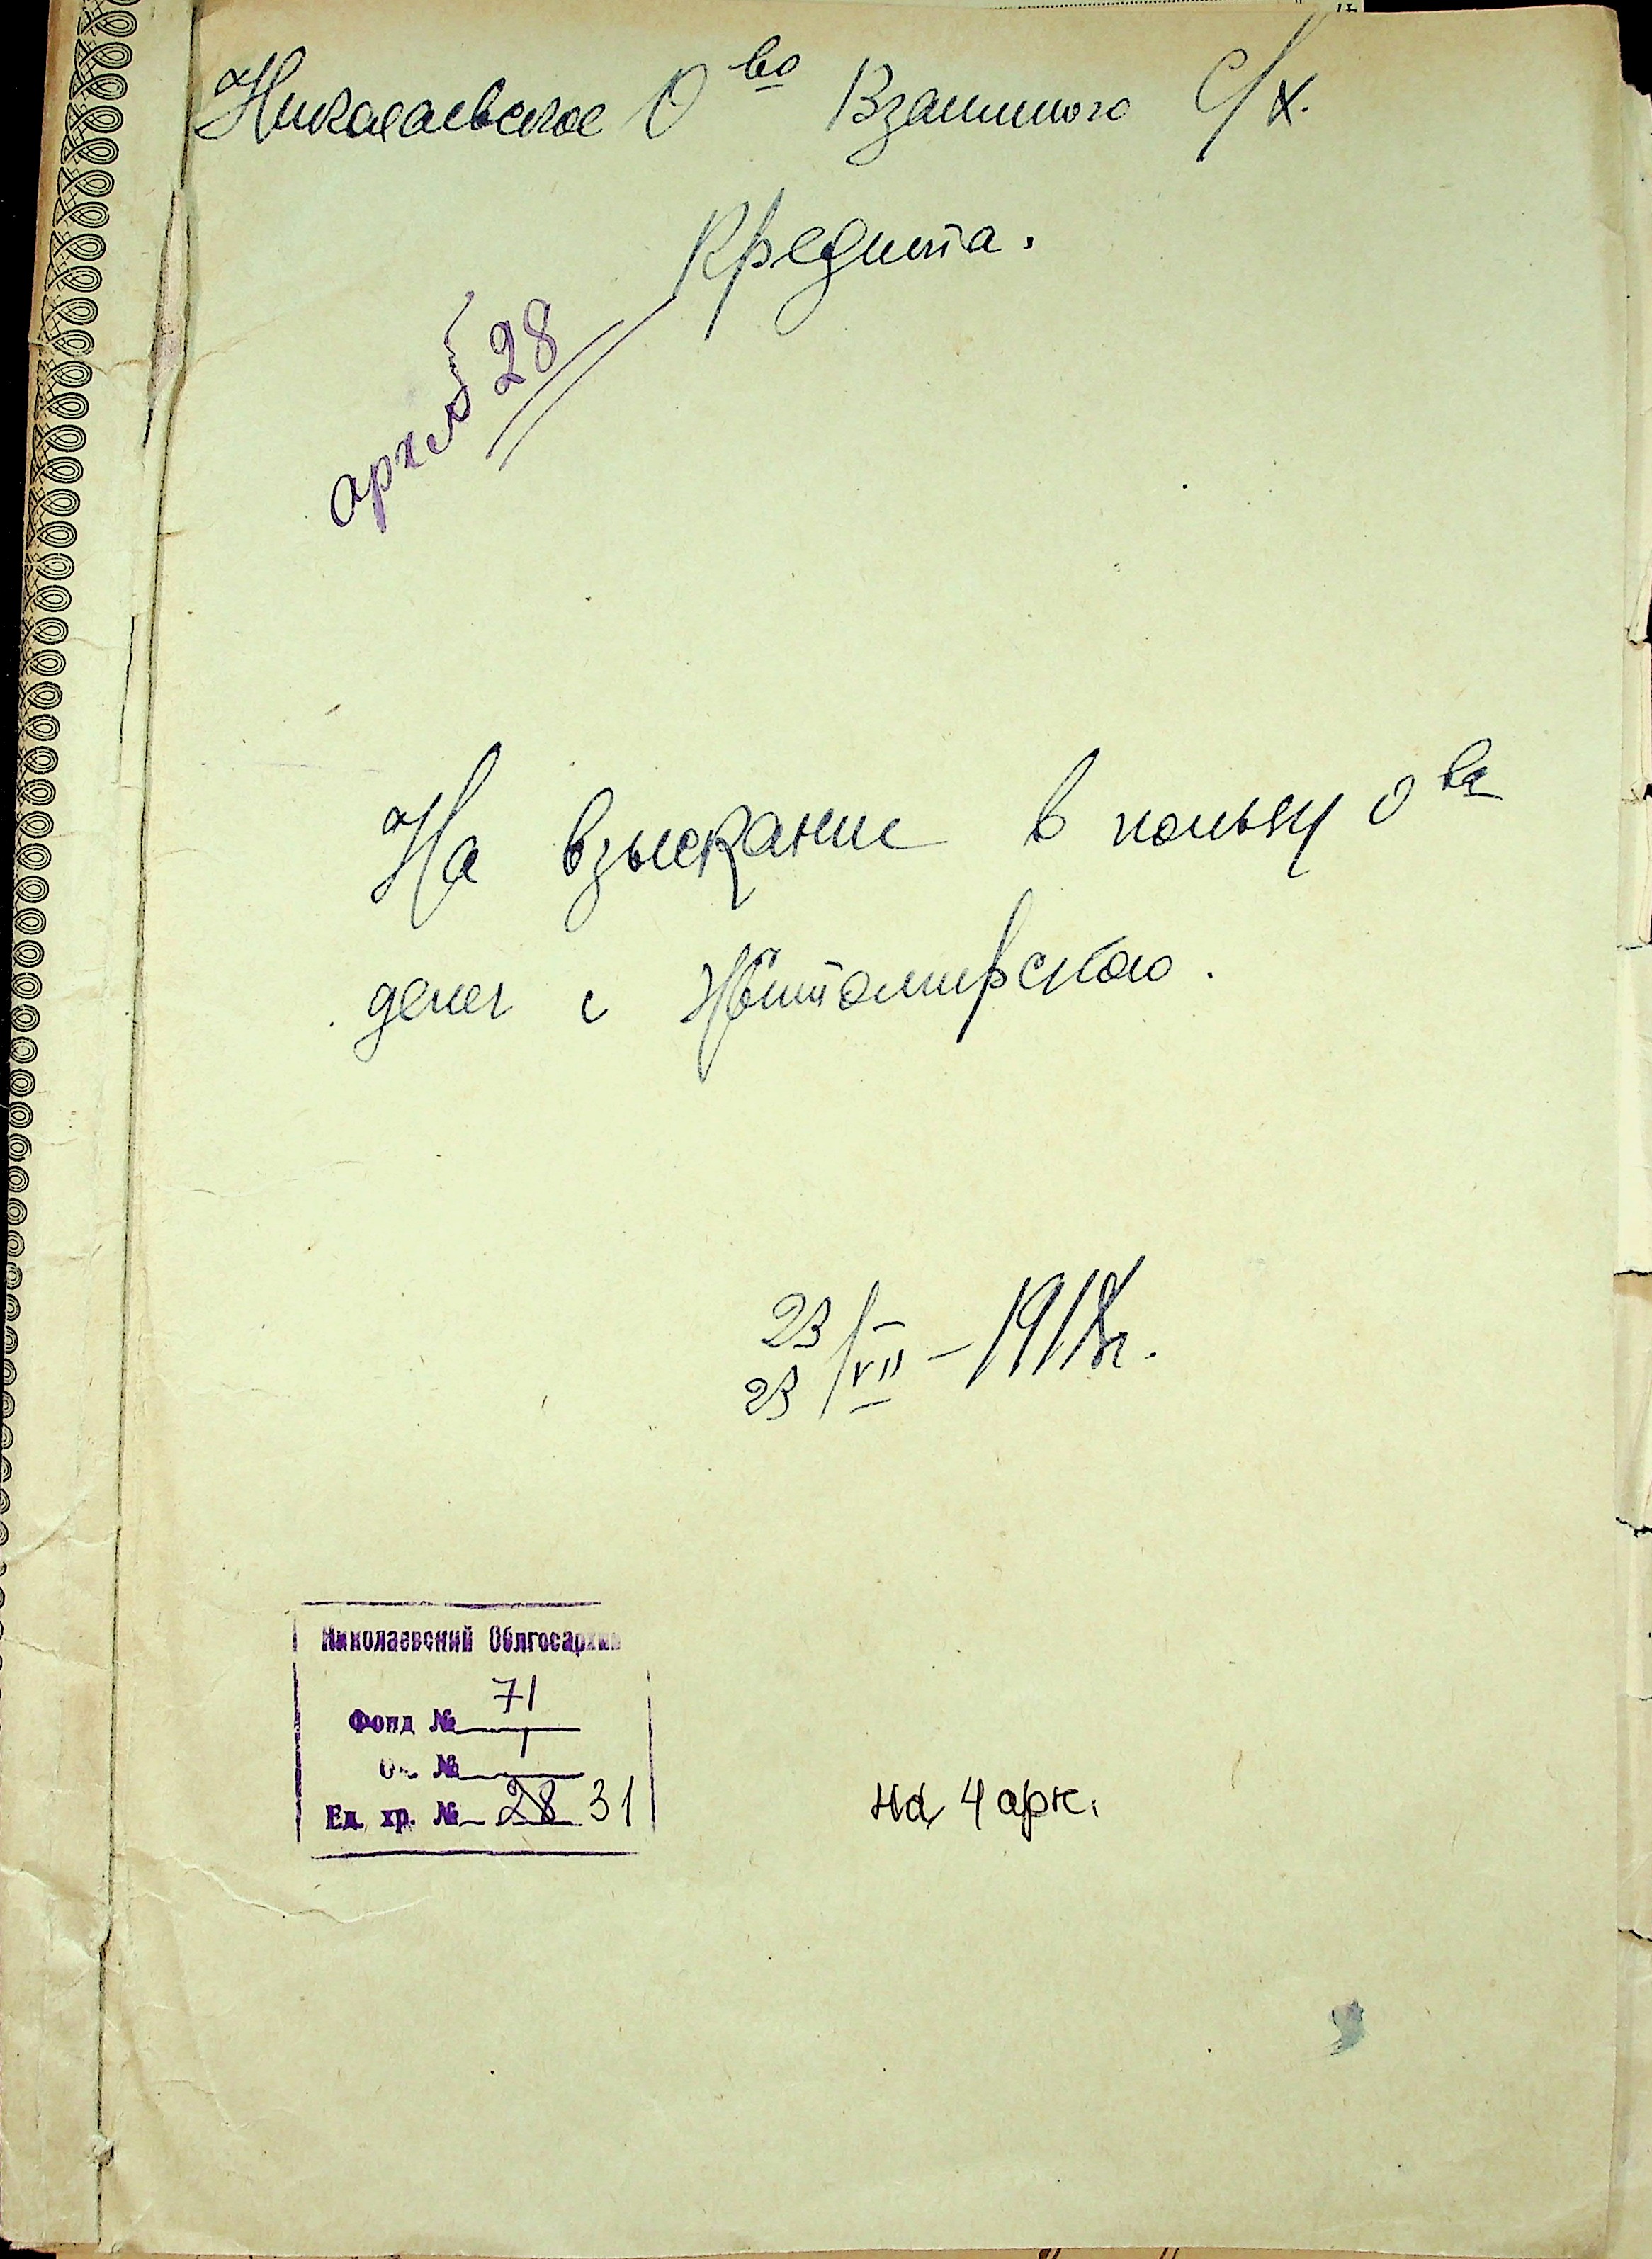 Николаевское О во Взаимного С/х.
Кредита.
архив 28
На взыскание в пользу о ва
денег с Житомирского.
23/23 VII – 1918 г.
Николаевский Облгосархив
Фонд № 71
Оп. № 1
Ед. хр. № 28 31
на 4 арк.